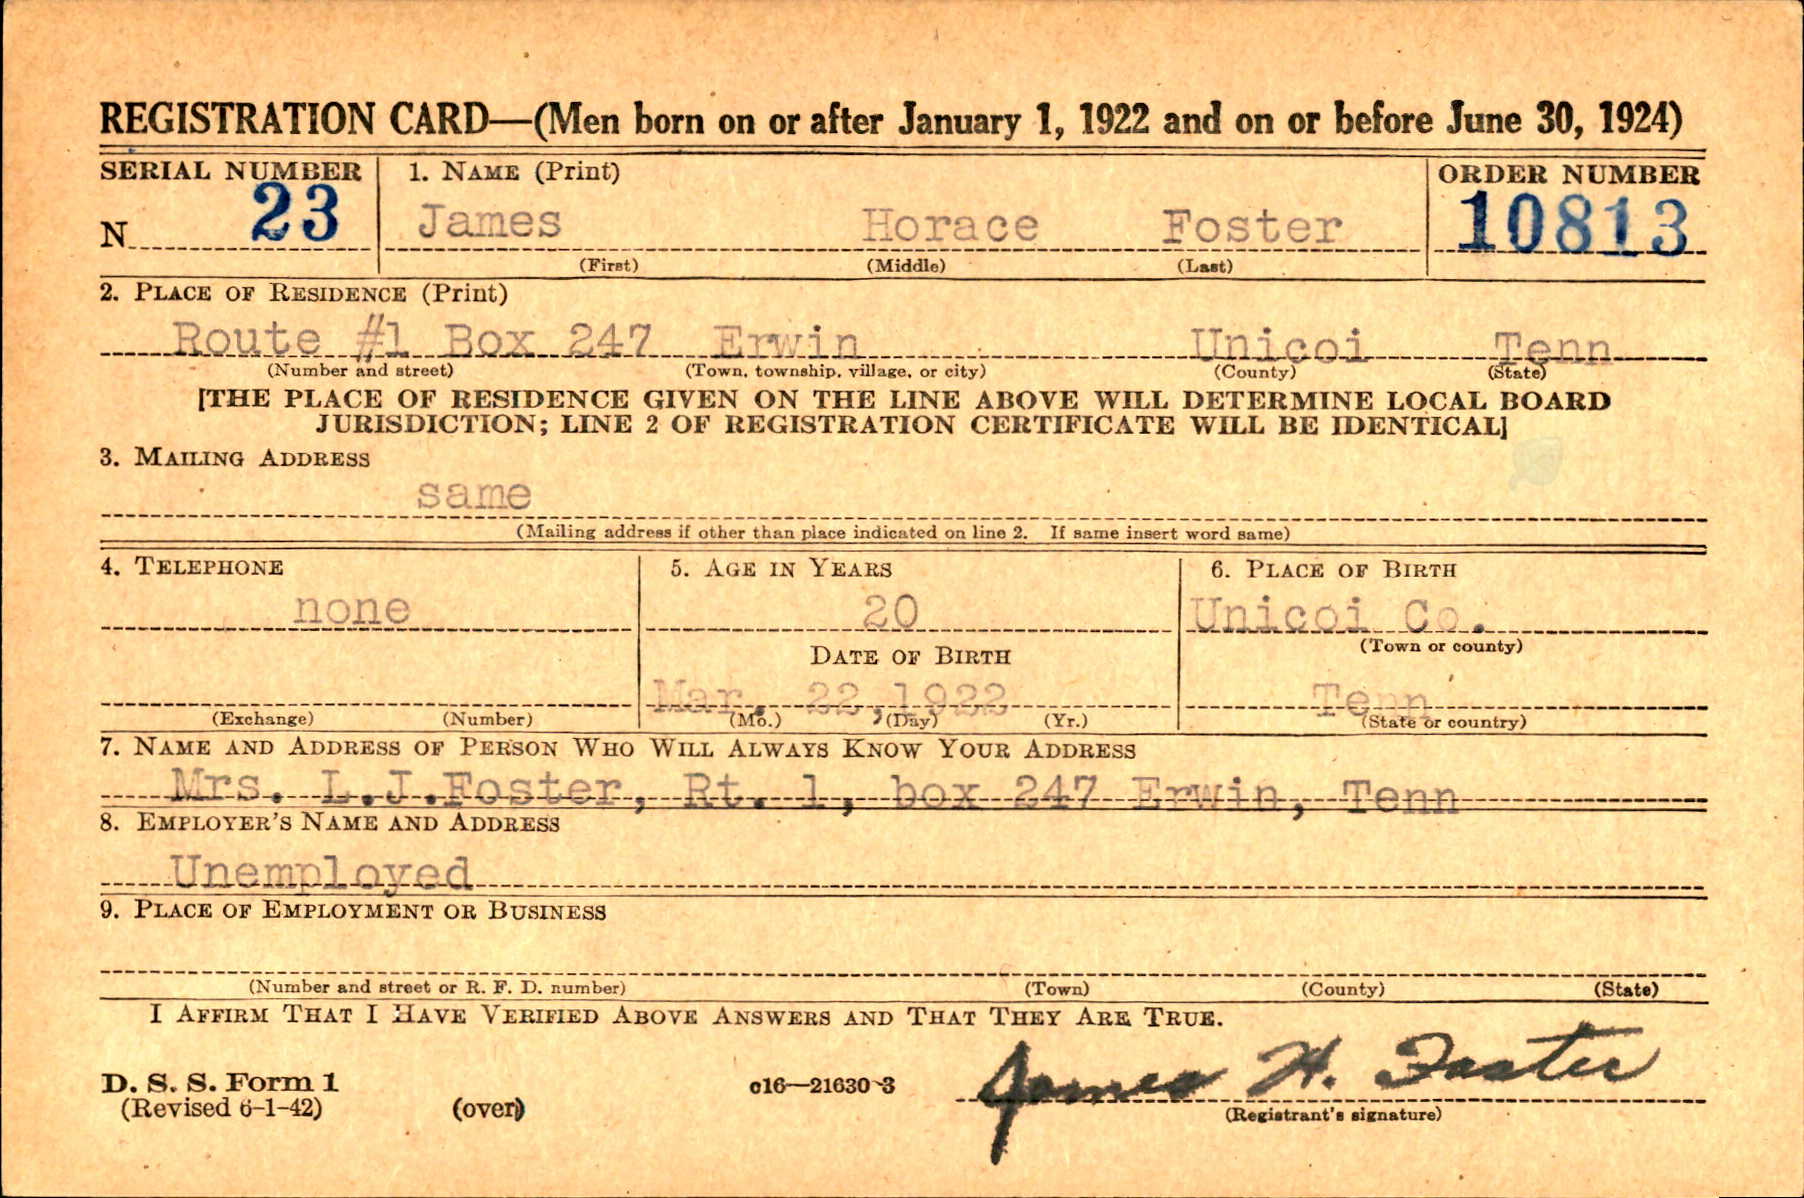 REGISTRATION CARD—(Men born on or after January 1, 1922 and on or before June 30, 1924)
SERIAL NUMBER 1. NAME (Print) ORDER NUMBER
N 23 James Horace Foster 10813
(First) (Middle) (Last)
2. PLACE OF RESIDENCE (Print)
Route #1 Box 247 Erwin Unicoi Tenn
(Number and street) (Town, township, village, or city) (County) (State)
[THE PLACE OF RESIDENCE GIVEN ON THE LINE ABOVE WILL DETERMINE LOCAL BOARD
JURISDICTION; LINE 2 OF REGISTRATION CERTIFICATE WILL BE IDENTICAL]
3. MAILING ADDRESS
same
(Mailing address if other than place indicated on line 2. If same insert word same)
4. TELEPHONE 5. AGE IN YEARS 6. PLACE OF BIRTH
none 20 Unicoi Co.
(Town or county)
DATE OF BIRTH
Mar. 22,1922 Tenn
(Exchange) (Number) (Mo.) (Day) (Yr.) (State or country)
7. NAME AND ADDRESS OF PERSON WHO WILL ALWAYS KNOW YOUR ADDRESS
Mrs. L.J.Foster, Rt. 1, box 247 Erwin, Tenn
8. EMPLOYER'S NAME AND ADDRESS
Unemployed
9. PLACE OF EMPLOYMENT OR BUSINESS
(Number and street or R. F. D. number) (Town) (County) (State)
I AFFIRM THAT I HAVE VERIFIED ABOVE ANSWERS AND THAT THEY ARE TRUE.
D. S. S. Form 1 c16—21630-3 James H. Foster
(Revised 6-1-42) (over) (Registrant's signature)